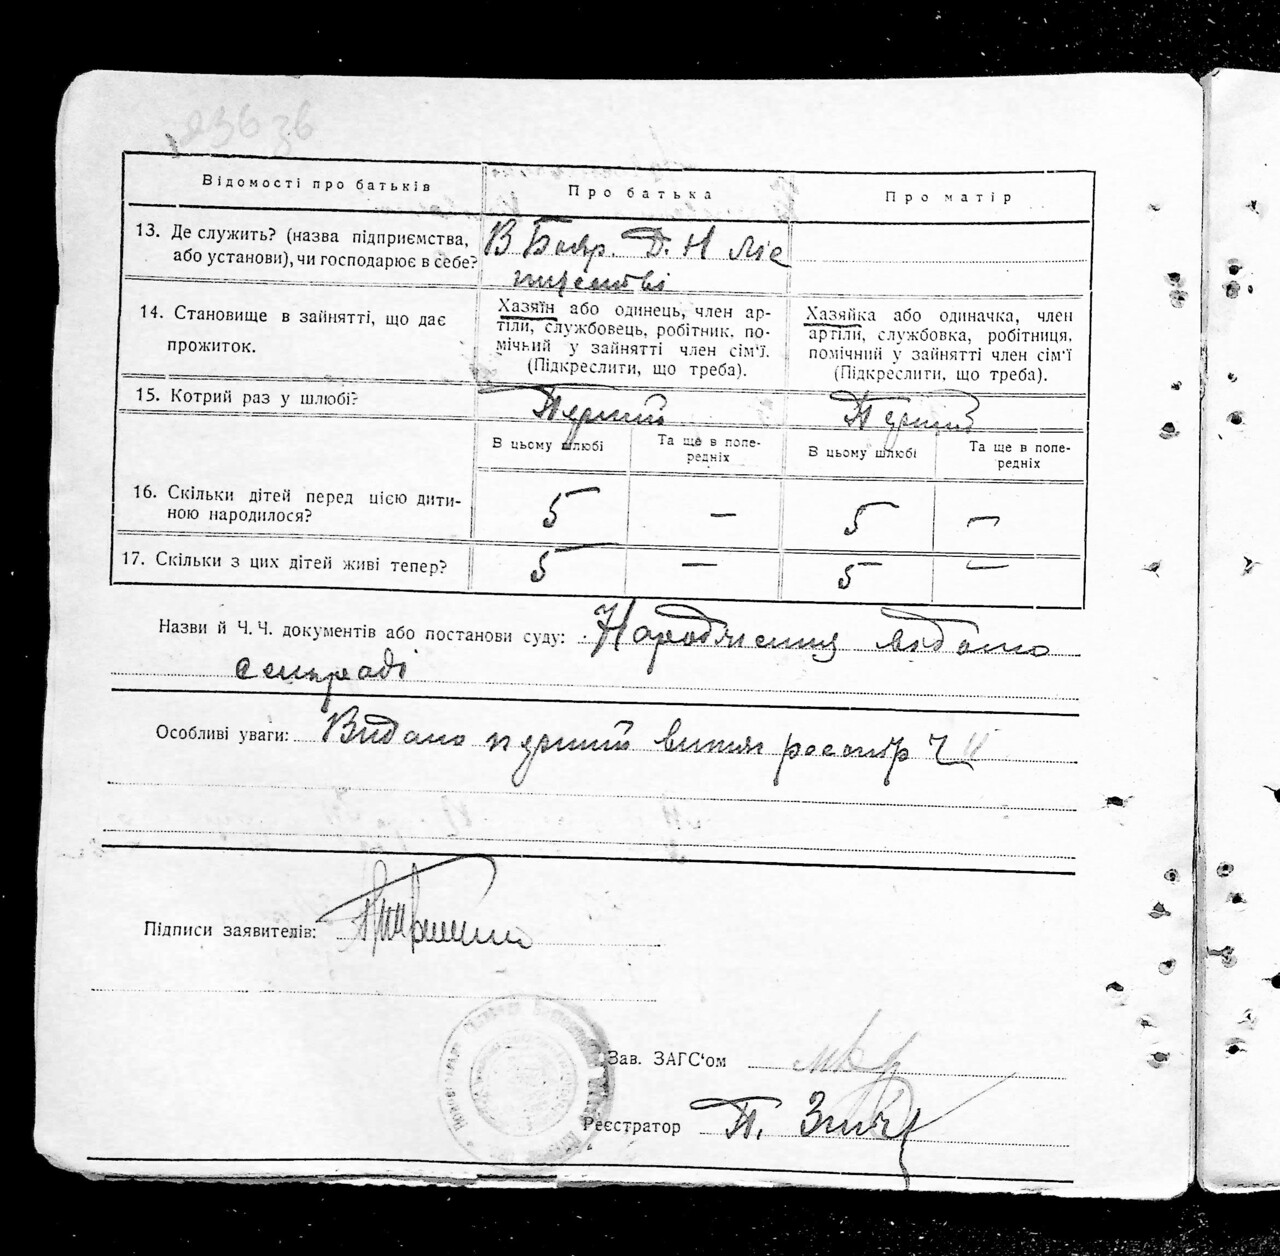 23636
Відомості про батьків
Про батька
Про матір
13. Де служить? (назва підприємства,
або установи), чи господарює в себе?
В Бояр. Д. Н Ліс
ництві
14. Становище в зайнятті, що дає
прожиток.
Хазяїн або одинець, член ар-
тіли, службовець, робітник. по-
мічний у зайнятті член сім'ї.
(Підкреслити, що треба).
Хазяйка або одиначка, член
артіли, службовка, робітниця,
помічний у зайнятті член сім'ї
(Підкреслити, що треба).
15. Котрий раз у шлюбі?
Перший
Перший
В цьому шлюбі
Та ще в попе-
редніх
В цьому шлюбі
Та ще в попе-
редніх
16. Скільки дітей перед цією дити-
ною народилося?
5 — 5 —
17. Скільки з цих дітей живі тепер?
5 — 5 —
Назви й Ч. Ч. документів або постанови суду:
видано
сільраді
Особливі уваги: Видано перший витяг реєстр Ч
Підписи заявителів:
Зав. ЗАГС'ом
Реєстратор П.